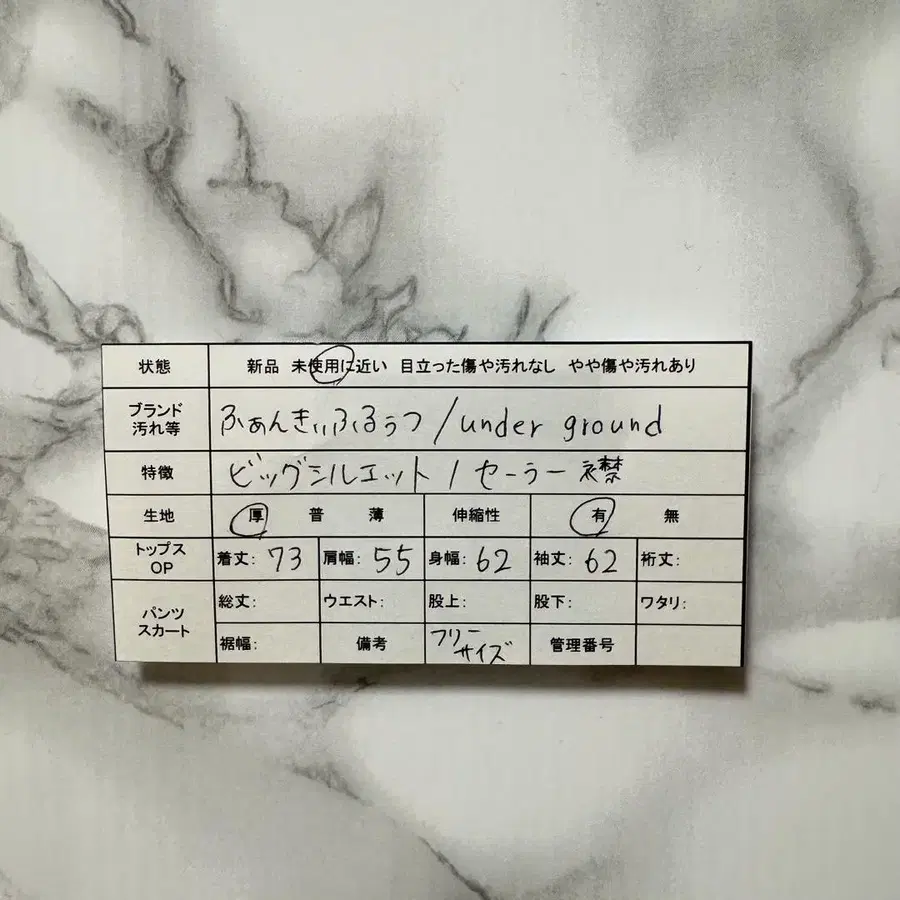 状態 新品 未使用に近い 目立った傷や汚れなし やや傷や汚れあり
ブランド
汚れ等
ふぁんきぃふるぅつ/under ground
特徴 ビッグシルエット/セーラー襟
生地 厚 普 薄 伸縮性 有 無
トップス
OP
着丈: 73 肩幅: 55 身幅: 62 袖丈: 62 裄丈:
パンツ
スカート
総丈: ウエスト: 股上: 股下: ワタリ:
裾幅: 備考 フリー
サイズ 管理番号